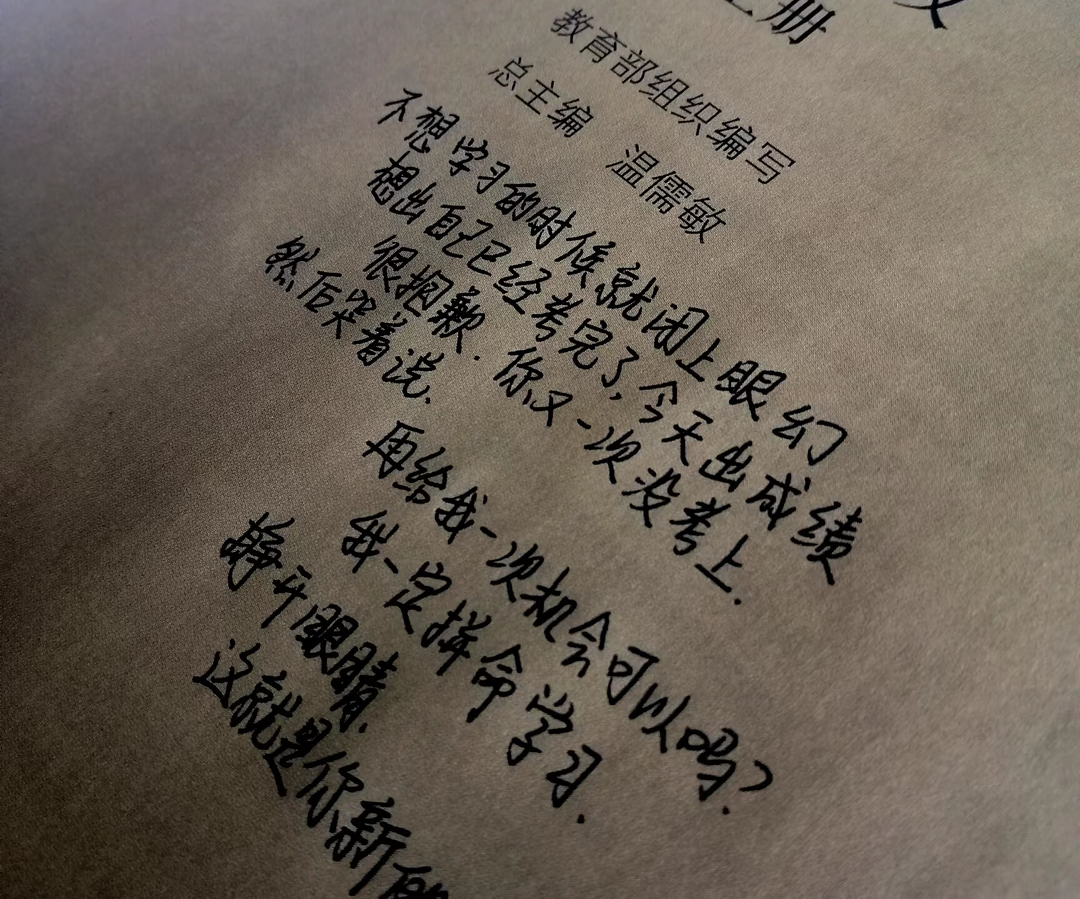 文
上册
教育部组织编写
总主编 温儒敏
不想学习的时候就闭上眼幻
想出自己已经考完了,今天出成绩
很抱歉.你又一次没考上.
然后哭着说.
再给我一次机会可以吗?
我一定拼命学习.
睁开眼睛.
这就是你新的